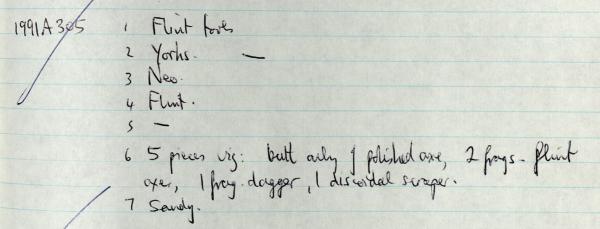 1991A305 1 Flint
2 Yorks. —
3 Neo.
4 Flint.
5 —
6 5 pieces viz: butt only of polished axe, 2 frags. flint
axes, 1 frag. dagger, 1 discoidal scraper.
7 Sandy.